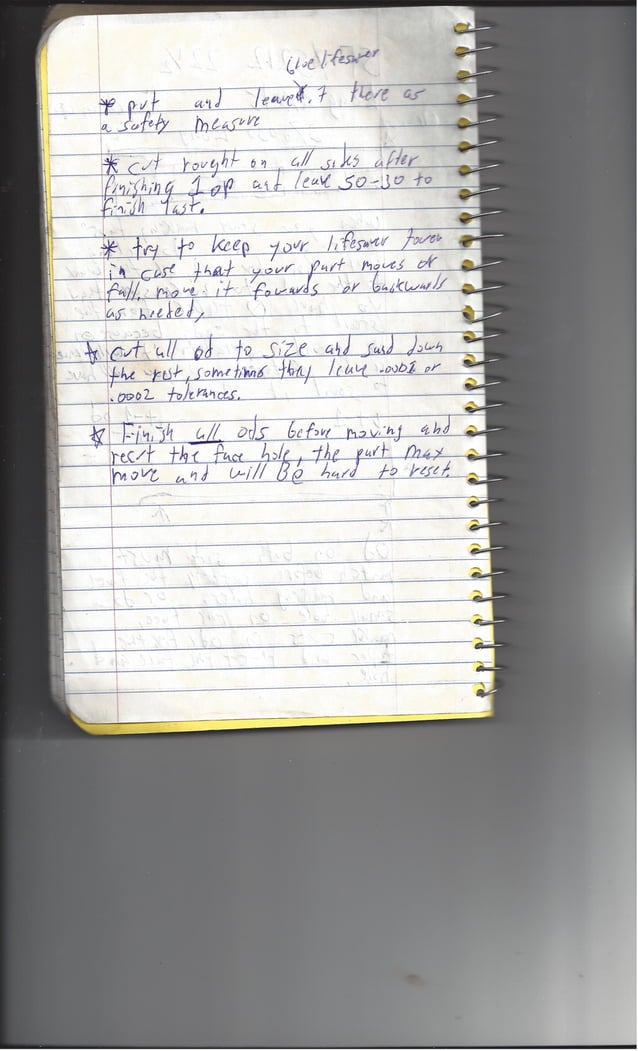 lifesaver
* put and leave it there as
a safety measure
* cut rought on all sides after
finishing 1 op and leave 50-30 to
finish last.
* try to keep your lifesaver
in case that your part moves or
fall, move it fowards or backwards
as needed,
* cut all od to size and sand down
the rest, sometime they leave .0001 or
.0002 tolerances.
* Finish all ods before moving and
reset the face hole, the part max
move and will Be hard to reset.